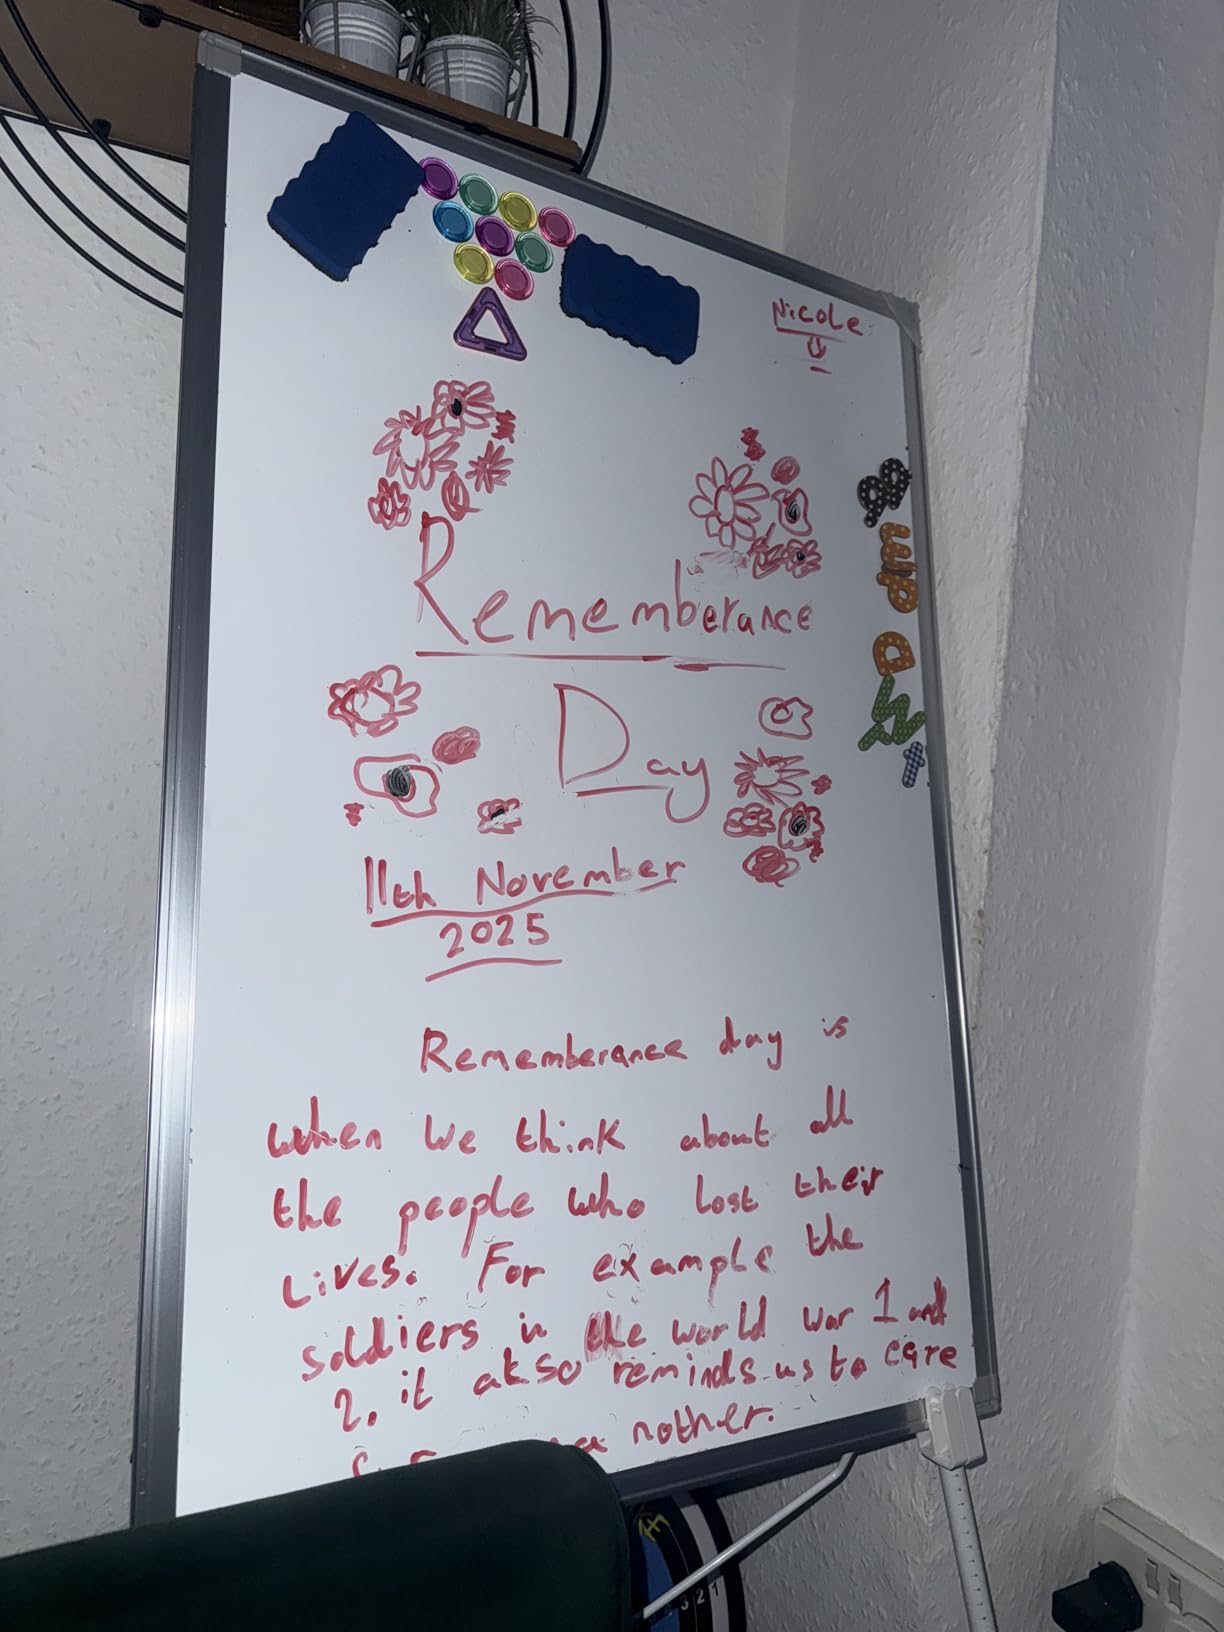 Nicole
Rememberance
Day
11th November
2025
Rememberance day is
when we think about all
the people who lost their
Lives. For example the
soldiers in the world war 1 and
2. it also reminds us to care
nother.
3 2 1